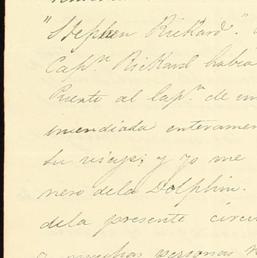 "Stephen Rickard".
Cap.ⁿ Rickard habia
Puente al Cap.ⁿ de
incendiada enteramen
su viaje; y yo me
nero de la Dolphin.
de la presente circu
muchas personas